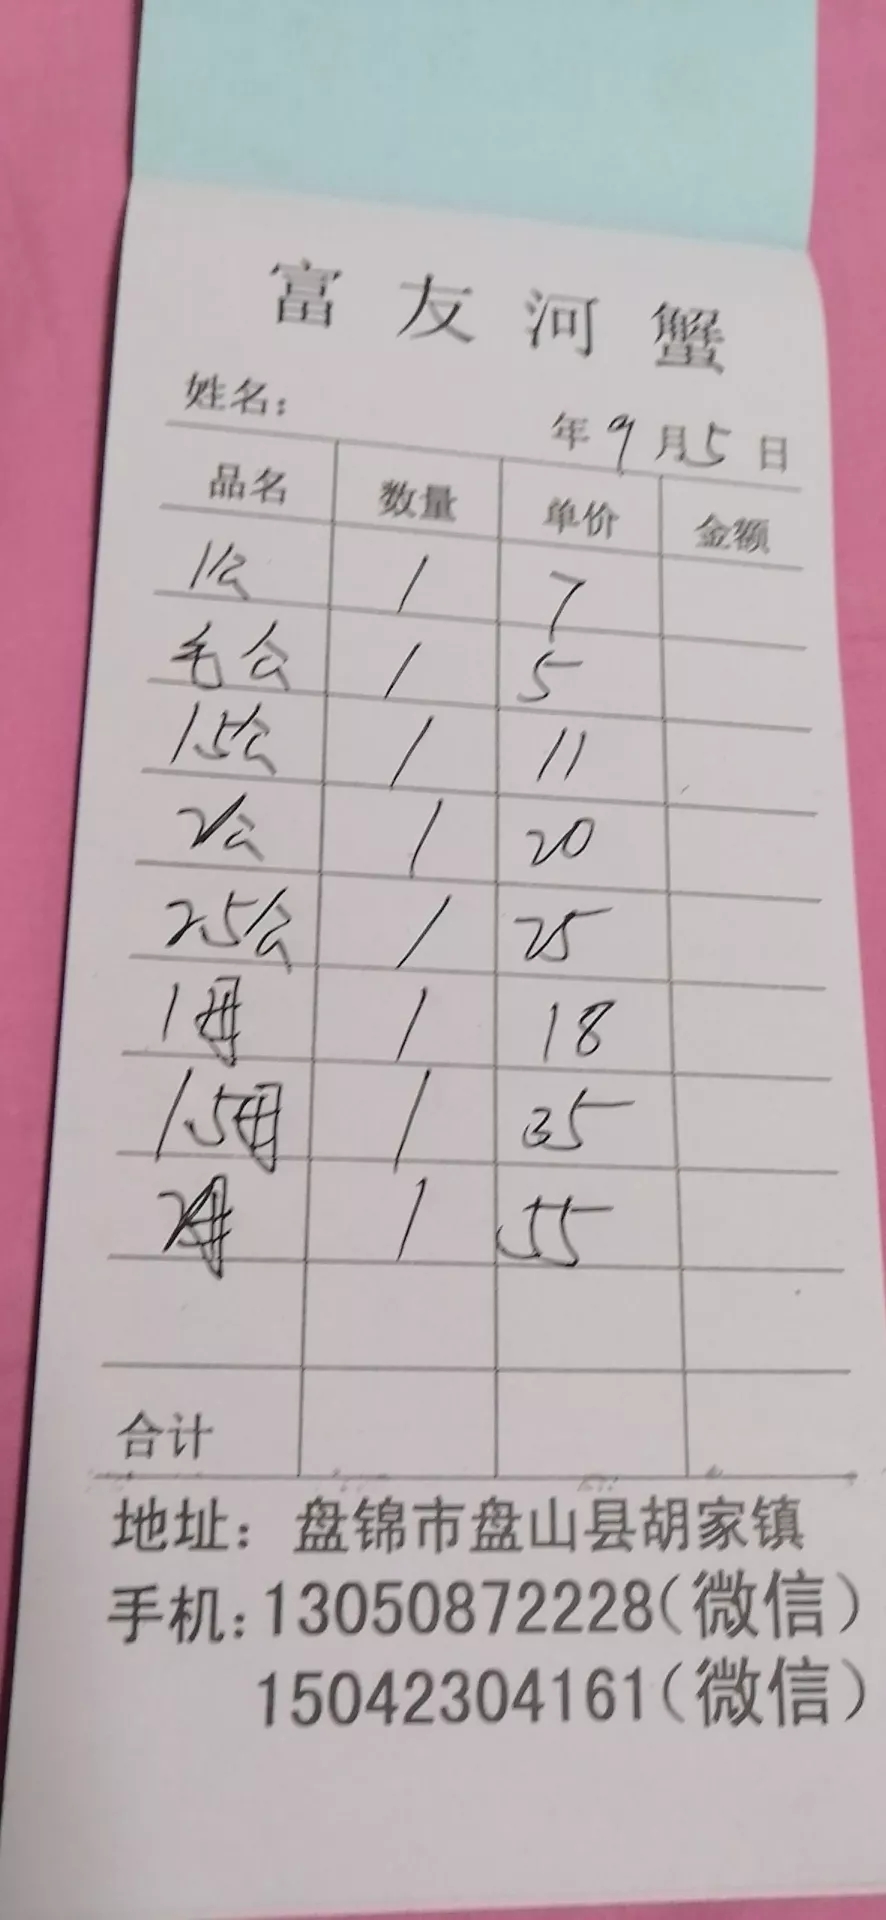 富友河蟹
姓名： 年9月5日
品名 数量 单价 金额
1公 1 7
毛公 1 5
1.5公 1 11
2公 1 20
2.5公 1 25
1母 1 18
1.5母 1 35
2母 1 55
合计
地址：盘锦市盘山县胡家镇
手机：13050872228（微信）
15042304161（微信）